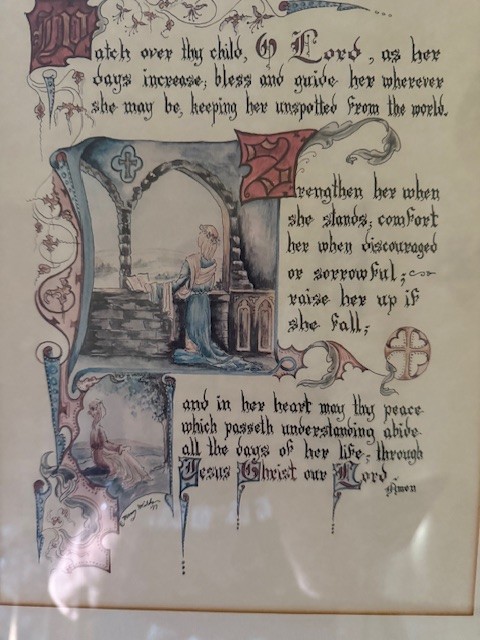 Watch over thy child, O Lord, as her
days increase; bless and guide her wherever
she may be, keeping her unspotted from the world.
Strengthen her when
she stands; comfort
her when discouraged
or sorrowful;
raise her up if
she fall;
and in her heart may thy peace
which passeth understanding abide
all the days of her life; through
Jesus Christ our Lord
Amen